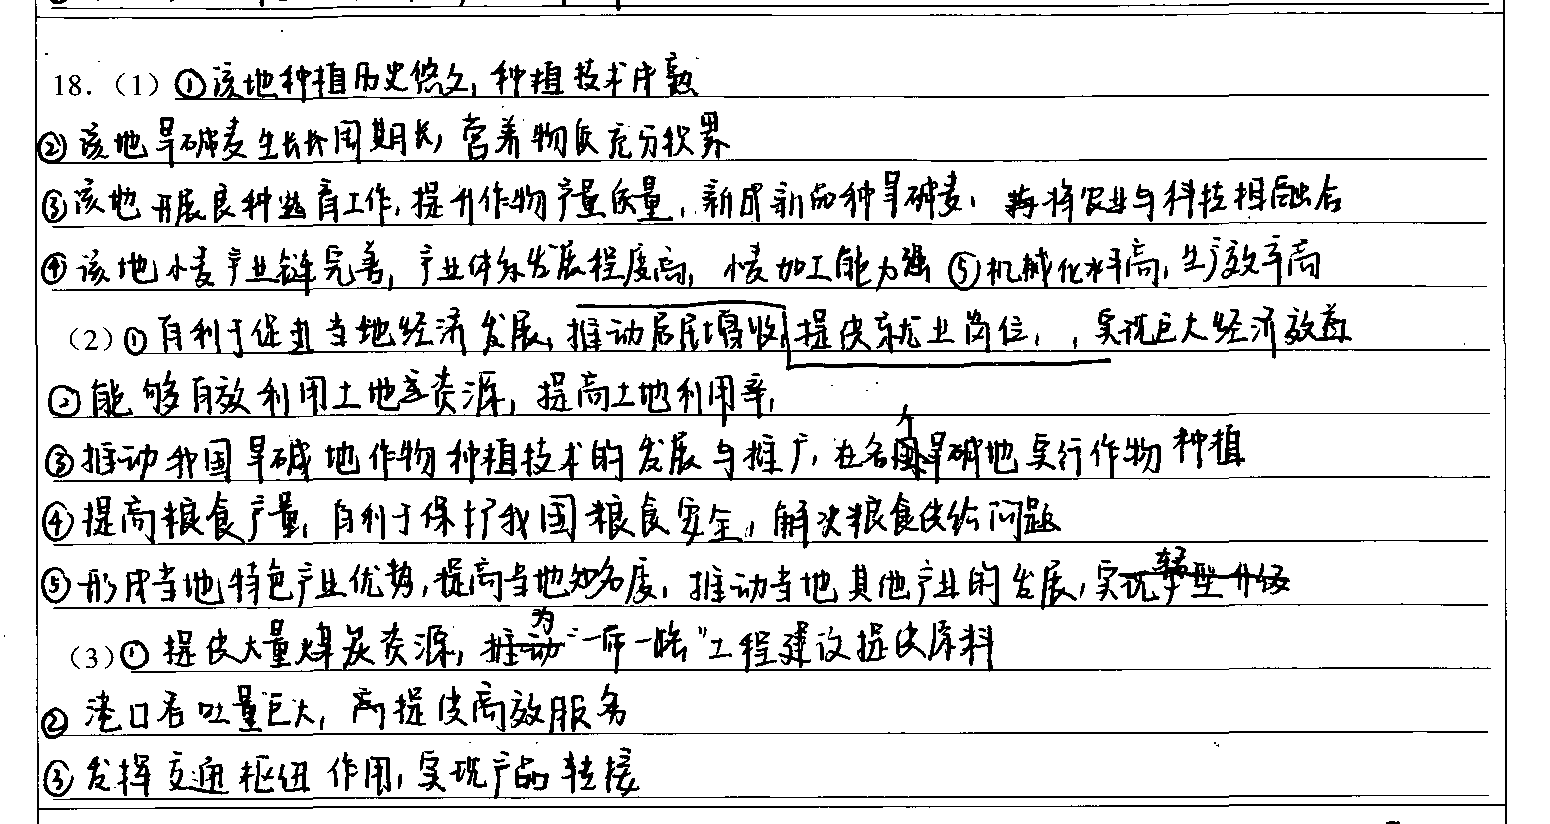 18.（1）①该地种植历史悠久，种植技术成熟
②该地旱碱麦生长周期长，营养物质充分积累
③该地开展良种选育工作，提升作物产量质量，新成新品种旱碱麦，将农业与科技相融合
④该地小麦产业链完善，产业体系发展程度高，小麦加工能力强 ⑤机械化水平高，生产效率高
（2）①有利于促进当地经济发展，推动居民增收，提供就业岗位，实现巨大经济效益
②能够有效利用土地资源，提高土地利用率，
③推动我国旱碱地作物种植技术的发展与推广，在各个旱碱地实行作物种植
④提高粮食产量，有利于保护我国粮食安全，解决粮食供给问题
⑤形成当地特色产业优势，提高当地知名度，推动当地其他产业的发展，
（3）①提供大量煤炭资源，为“一带一路”工程建设提供原料
②港口吞吐量巨大，提供高效服务
③发挥交通枢纽作用，实现产品转接